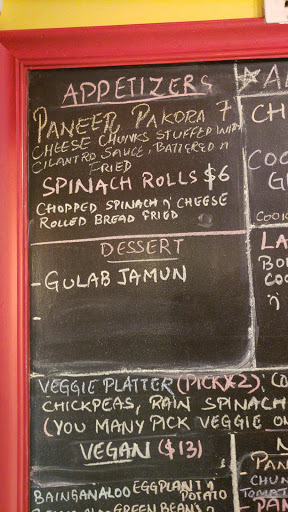 APPETIZERS
PANEER PAKORA 7
CHEESE CHUNKS STUFFED WITH
CILANTRO SAUCE, BATTERED n
FRIED
SPINACH ROLLS $6
CHOPPED SPINACH n' CHEESE
ROLLED BREAD FRIED
DESSERT
- GULAB JAMUN
-
VEGGIE PLATTER (PICK X 2), CO
CHICKPEAS, RAIN SPINACH
(YOU MANY PICK VEGGIE ON
VEGAN ($13)
BAINGANALOO EGGPLANT n
POTATO
GREEN BEANS
A
CH
COO
G
COOK
LA
BO
COO
n
N
PAN
CHUN
TOMATO
PAN